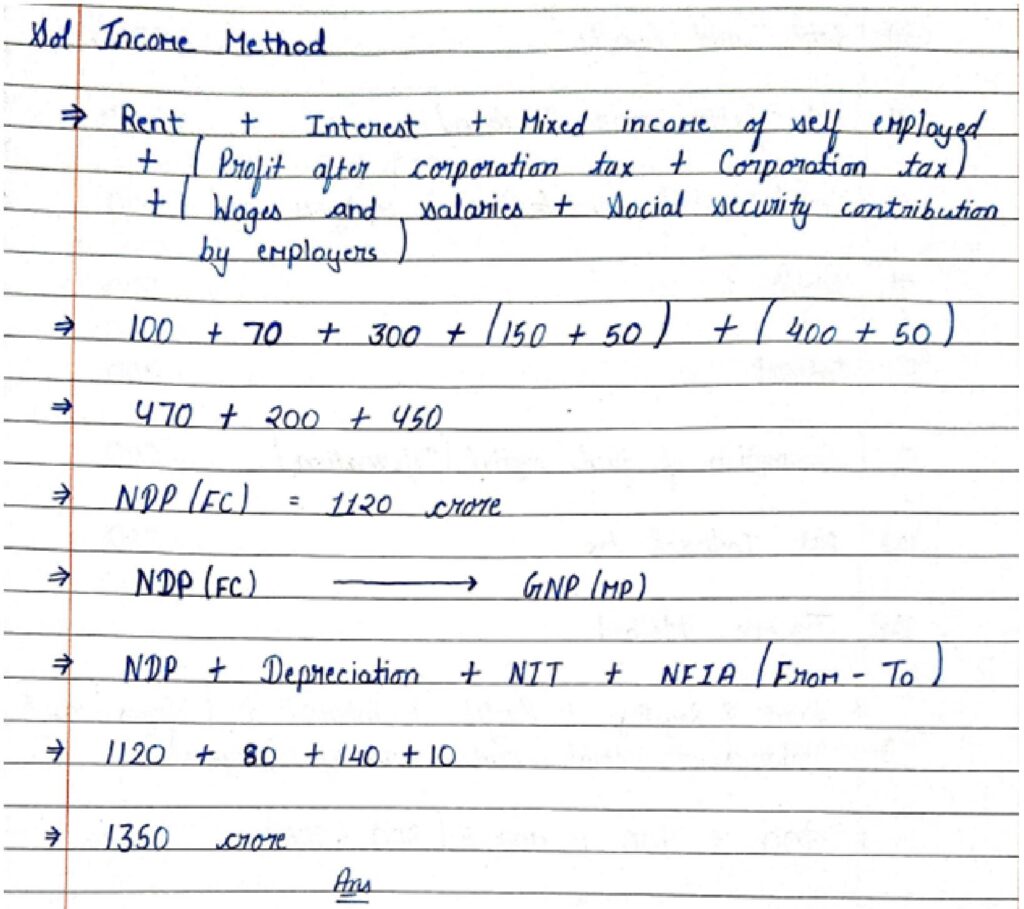 Sol Income Method
⇒ Rent + Interest + Mixed income of self employed
+ (Profit after corporation tax + Corporation tax)
+ (Wages and salaries + Social security contribution
by employers)
⇒ 100 + 70 + 300 + (150 + 50) + (400 + 50)
⇒ 470 + 200 + 450
⇒ NDP (FC) = 1120 crore
⇒ NDP (FC) ⟶ GNP (MP)
⇒ NDP + Depreciation + NIT + NFIA (From - To)
⇒ 1120 + 80 + 140 + 10
⇒ 1350 crore
Ans